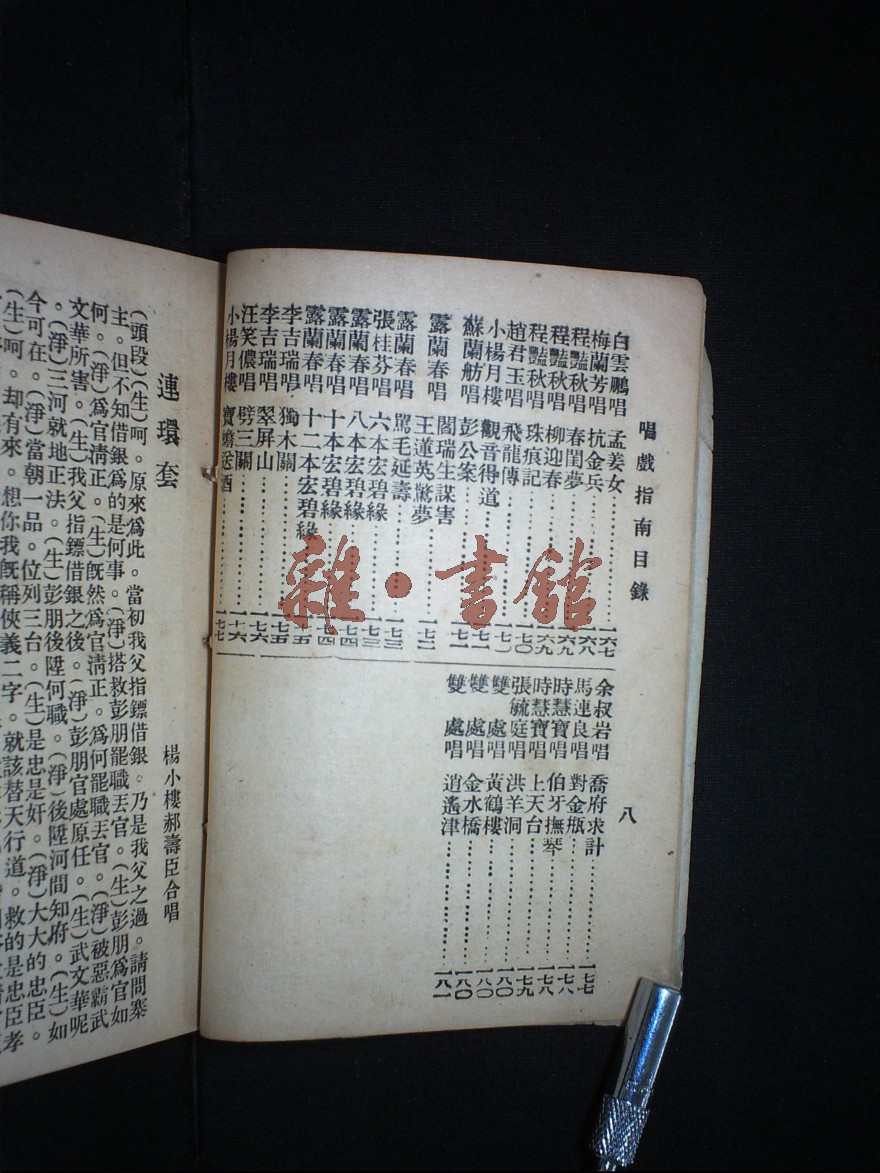 唱戲指南目錄 八
白雲鵬唱 孟姜女………一六七
梅蘭芳唱 抗金兵………一六八
程豔秋唱 春閨夢………一六九
程豔秋唱 柳迎春………一六九
程豔秋唱 珠痕記………一七〇
趙君玉唱 飛龍傳………一七〇
小楊月樓 觀音得道………一七一
蘇蘭舫唱 彭公案………一七一
露蘭春唱 閻瑞生謀害
王蓮英驚夢………一七二
露蘭春唱 罵毛延壽………一七三
張桂芬唱 六本宏碧緣………一七三
露蘭春唱 八本宏碧緣………一七四
露蘭春唱 十本宏碧緣………一七四
露蘭春唱 十二本宏碧緣………一七五
李吉瑞唱 獨木關………一七五
李吉瑞唱 翠屏山………一七六
汪笑儂唱 劈三關………一七六
小楊月樓 寶蟾送酒………一七七
余叔岩唱 喬府求計………一七七
馬連良唱 對金瓶………一七八
時慧寶唱 伯牙撫琴………一七八
時慧寶唱 上天台………一七九
張毓庭唱 洪羊洞………一八〇
雙處唱 黃鶴樓………一八〇
雙處唱 金水橋………一八〇
雙處唱 逍遙津………一八一
雜·書館
連環套 楊小樓郝壽臣合唱
(頭段)(生)呵。原來爲此。當初我父指鏢借銀。乃是我父之過。請問寨
主。但不知借銀爲的是何事。(淨)搭救彭朋罷職丟官。(生)彭朋爲官如
何。(淨)爲官淸正。(生)旣然爲官淸正。爲何罷職丟官。(淨)被惡霸武
文華所害。(生)我父指鏢借銀之後。(淨)彭朋官處原任。(生)武文華呢
。(淨)三河就地正法。(生)彭朋後陞何職。(淨)後陞河間知府。(生)如
今可在。(淨)當朝一品。位列三台。(生)是忠是奸。(淨)大大的忠臣。
(生)呵。却有來。想你我旣稱俠義二字。就該替天行道。救的是忠臣孝